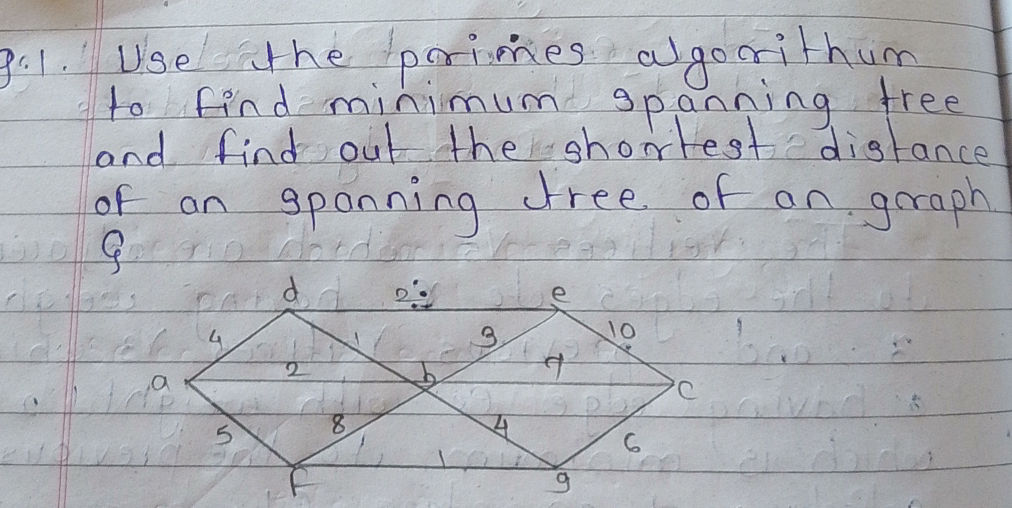 Q.1. Use the primes algorithum
to find minimum spanning tree
and find out the shortest distance
of an spanning tree of an graph
G
d 2 e
4 1 3 10
a 2 b 7 c
5 8 4 6
1
f g